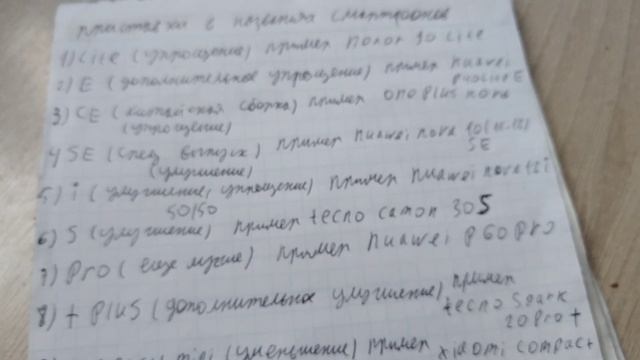 приставки в названиях смартфонов
1) Lite (упрощение) пример honor 10 Lite
2) E (дополнительное упрощение) пример huawei
E
3) CE (китайская сборка) пример oneplus nord
(упрощение)
4) SE (спец выпуск) пример huawei nova 10
(улучшение) SE
5) i (улучшение, упрощение) пример huawei nova
50/50
6) S (улучшение) пример tecno camon 30S
7) Pro (еще лучше) пример huawei P60 Pro
8) + Plus (дополнительное улучшение) пример
tecno Spark
20 Pro +
mini (уменьшение) пример xiaomi compact